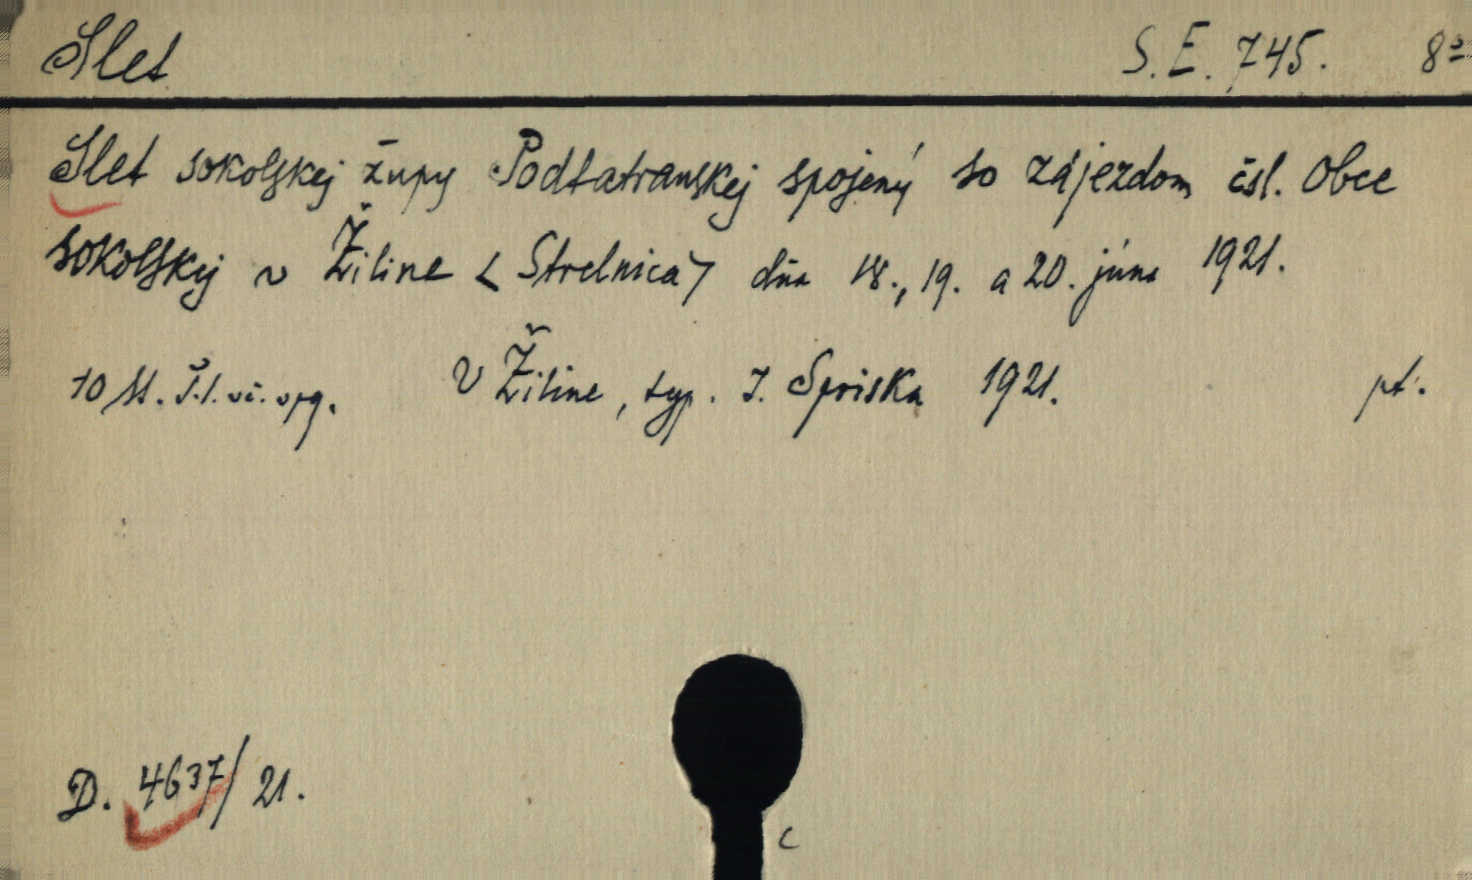 Slet S.E. 745. 8°
Slet sokolskej župy Podtatranskej spojený so zájezdom čsl. Obce
sokolskej v Žiline <Strelnica> dňa 18., 19. a 20. júna 1921.
10 st. V Žiline, typ. I. Spriska 1921. pt.
D. 4637/21.
c